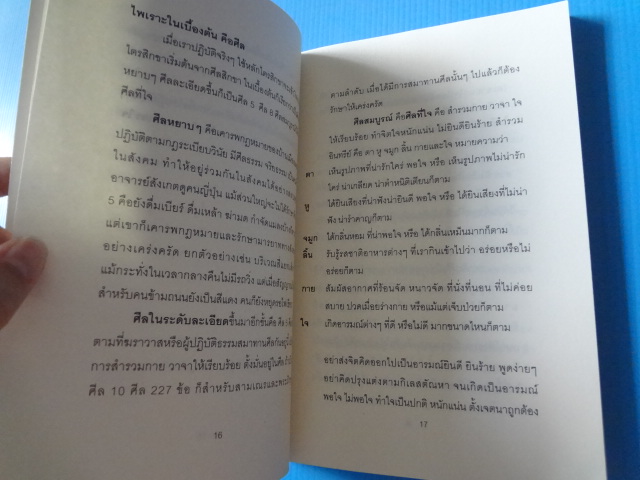 ไพเราะในเบื้องต้น คือศีล
เมื่อเราปฏิบัติจริงๆ ใช้หลักไตรสิกขา
ไตรสิกขาเริ่มต้นจากศีลสิกขา ในเบื้องต้น
หยาบๆ ศีลละเอียดขึ้นก็เป็นศีล 5 ศีล 8
ศีลที่ใจ
ศีลหยาบๆ คือเคารพกฎหมายของบ้านเมือง
ปฏิบัติตามกฎระเบียบวินัย มีศีลธรรม จริยธรรม
ในสังคม ทำให้อยู่ร่วมกันในสังคมได้อย่าง
อาจารย์สังเกตดูคนญี่ปุ่น แม้ส่วนใหญ่จะไม่ได้
5 คือยังดื่มเบียร์ ดื่มเหล้า ฆ่ามด กำจัดแมลง
แต่เขาก็เคารพกฎหมายและรักษามารยาททาง
อย่างเคร่งครัด ยกตัวอย่างเช่น บริเวณสี่แยก
แม้กระทั่งในเวลากลางคืนไม่มีรถวิ่ง แต่เมื่อ
สำหรับคนข้ามถนนยังเป็นสีแดง คนก็ยังหยุด
ศีลในระดับละเอียดขึ้นมาอีกชั้นคือ ศีล 5
ตามที่ฆราวาสหรือผู้ปฏิบัติธรรมสมาทานศีลกันอยู่
การสำรวมกาย วาจาให้เรียบร้อย ตั้งมั่นอยู่ในศีล
ศีล 10 ศีล 227 ข้อ ก็สำหรับสามเณรและ
16
ตามลำดับ เมื่อได้มีการสมาทานศีลนั้นๆ ไปแล้วก็ต้อง
รักษาให้เคร่งครัด
ศีลสมบูรณ์ คือศีลที่ใจ คือ สำรวมกาย วาจา ใจ
ให้เรียบร้อย ทำจิตใจหนักแน่น ไม่ยินดียินร้าย สำรวม
อินทรีย์ คือ ตา หู จมูก ลิ้น กายและใจ หมายความว่า
ตา เห็นรูปภาพที่น่ารักใคร่ พอใจ หรือ เห็นรูปภาพไม่น่ารัก
ใคร่ น่าเกลียด น่าตำหนิติเตียนก็ตาม
หู ได้ยินเสียงที่น่าฟังน่ายินดี พอใจ หรือ ได้ยินเสียงที่ไม่น่า
ฟัง น่ารำคาญก็ตาม
จมูก ได้กลิ่นหอม ที่น่าพอใจ หรือ ได้กลิ่นเหม็นมากก็ตาม
ลิ้น รับรู้รสชาติอาหารต่างๆ ที่เรากินเข้าไปว่า อร่อยหรือไม่
อร่อยก็ตาม
กาย สัมผัสอากาศที่ร้อนจัด หนาวจัด ที่นั่งที่นอน ที่ไม่ค่อย
สบาย ปวดเมื่อยร่างกาย หรือแม้แต่เจ็บป่วยก็ตาม
ใจ เกิดอารมณ์ต่างๆ ที่ดี หรือไม่ดี มากขนาดไหนก็ตาม
อย่าส่งจิตคิดออกไปเป็นอารมณ์ยินดี ยินร้าย พูดง่ายๆ
อย่าคิดปรุงแต่งตามกิเลสตัณหา จนเกิดเป็นอารมณ์
พอใจ ไม่พอใจ ทำใจเป็นปกติ หนักแน่น ตั้งเจตนาถูกต้อง
17